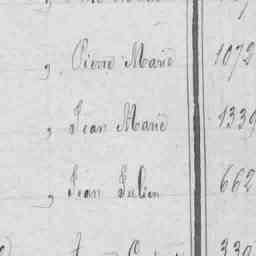 , Pierre Marie 1072
, Jean Marie 1339
, Jean Julien 662